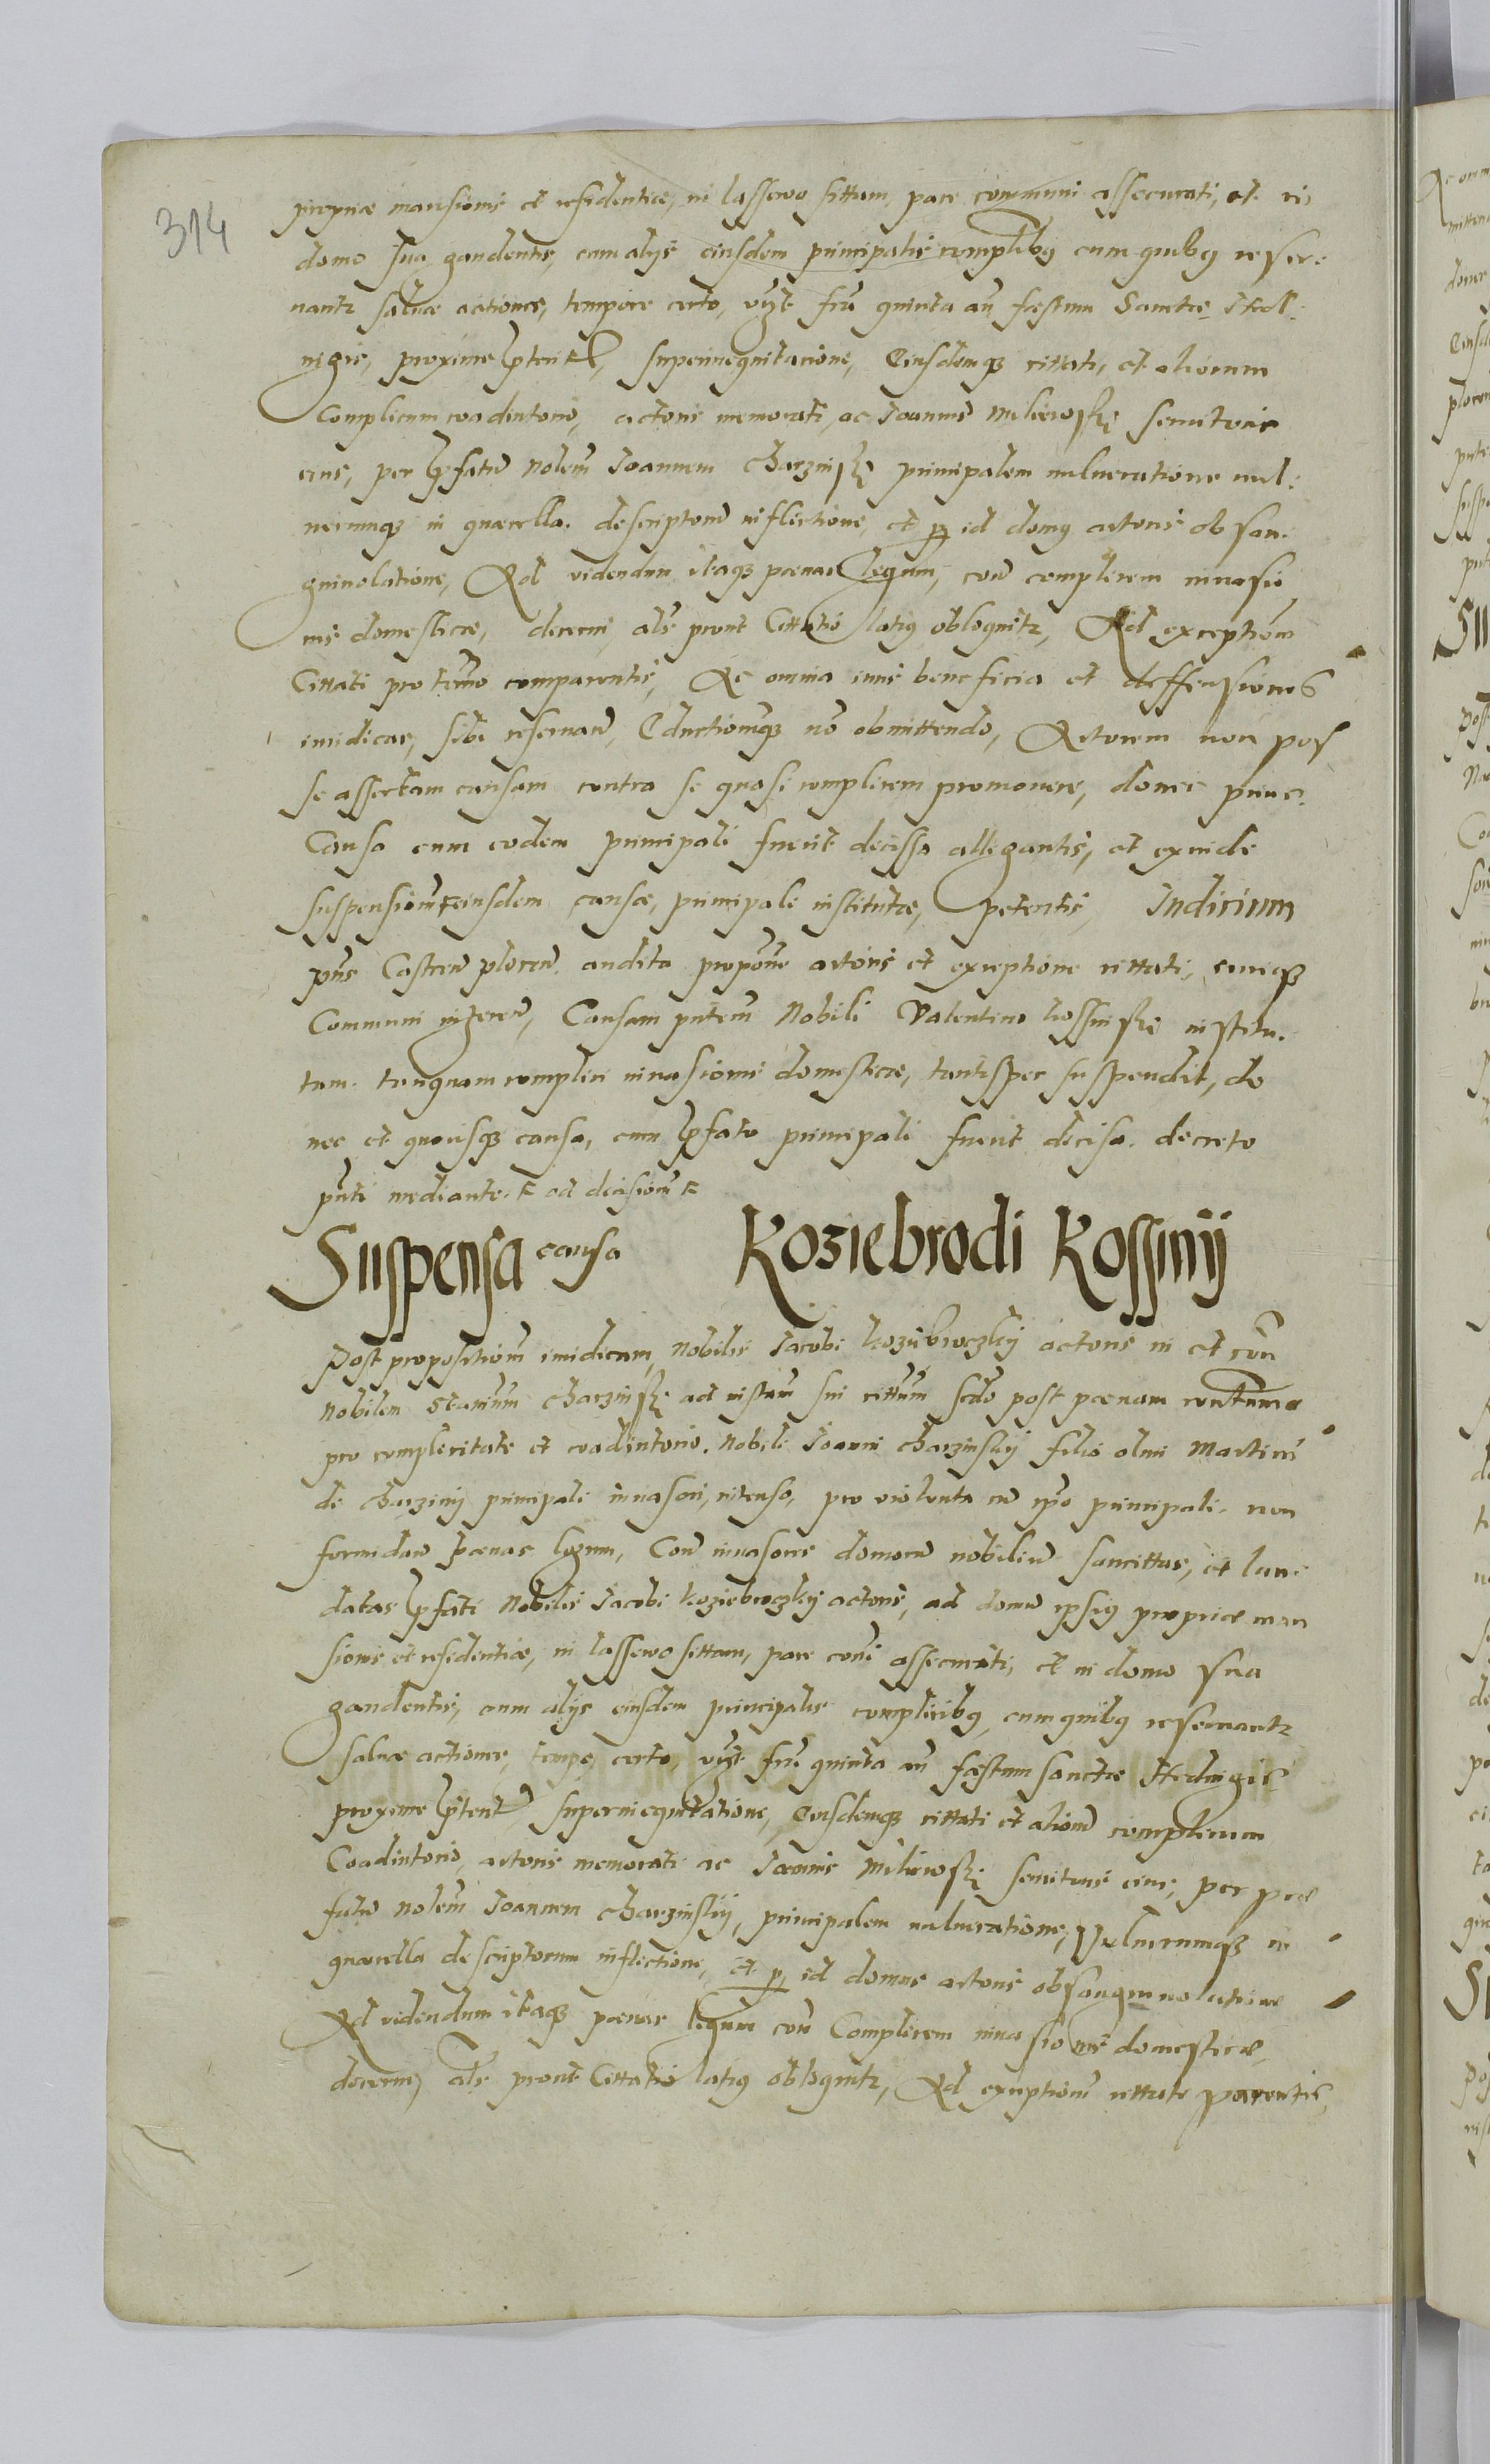 314
propriæ mansionis et residentiæ, in lassewo sittam, pace communi assecurati, et in
domo sua gaudentis, cum alijs eiusdem principalis complicibq cum quibq reser:
uantr saluæ actiones, tempore certo, vzt fria quinta an festum Sanctæ Hed:
uigis, proxime pterit, superinequitacione, Eiusdemqȝ cittati, et aliorum
Complicum coadiutorio, actoris memorati, ac Joannis Milewskj seruitoris
eius, per pfatu Nolem Joannem Charzinskj principalem vulneratione vul:
nerumqȝ in quærella descriptoru inflictione, et p id domq actoris obsan:
guinolatione, Ad videndum itaqȝ pœnas legum, con complicem inuasio
nis domesticæ, decerni, als prout Cittatio latiq obloquitr, Ad exceptiom
Cittati pro termo comparentis, Ac omnia iuris beneficia et deffensiones
iuridicas, sibi reseruan, Eductiomqȝ no obmittendo, Actorem non pos
se assertam causam contra se quasi complicem promouere, donec prius
Causa cum eodem principali fuerit decissa allegantis, et exinde
suspensiom eiusdem causæ, principali institutæ, petentis, Judicium
pns Castren plocen audita propone actoris et exceptione cittati, eiusqȝ
Communi ingeren, Causam pntem Nobili Valentino kossinskj institu:
tam tanquam complici inuasionis domesticæ, tantisper suspendit, do
nec et quousqȝ causa, cum pfato principali fuerit decisa decreto
pnti mediante ad decisiom
Suspensa causa Koziebrodi Kossinij
Post propositiom iuridicam, Nobilis Jacobi koziebroczkij actoris in et con
Nobilem Stanum Charzinskj ad instam sui cittum scdo post pœnam contuma
pro complicitate et coadiutorio Nobili Joanni Charzinskij filio olim Martini
de Charzinij principali inuasori, intenso, pro violenta cu ipo principali non
formidan Pœnas legum, Con inuasores domoru nobiliu sancittas, et lau:
datas pfati Nobilis Jacobi koziebroczkij actoris, ad domu ipsiq propriæ man
sionis et residentiæ, in lassewo sittam, pace coni assecurati, et in domo sua
gaudentis, cum alijs eiusdem principalis complicibq, cum quibq reseruantr
saluæ actiones, tempe certo, vzt fria quinta an festum sanctæ Heduigis
proxime pterit superinequitatione, Eiusdemqȝ cittati et alioru complicum
Coadiutorio, actoris memorati ac Joannis Milewskj seruitoris eius, per præ
fatu Nolem Joannem Charzinskij, principalem vulneratione, Vulnerumqȝ in
quærella descriptorum inflictione, et p id domus actoris obsanguinolatione
Ad videndum itaqȝ pœnas legum con Complicem inuasionis domesticæ,
decerni, als prout Cittatio latiq obloquitr, Ad exceptiom cittati parentis,